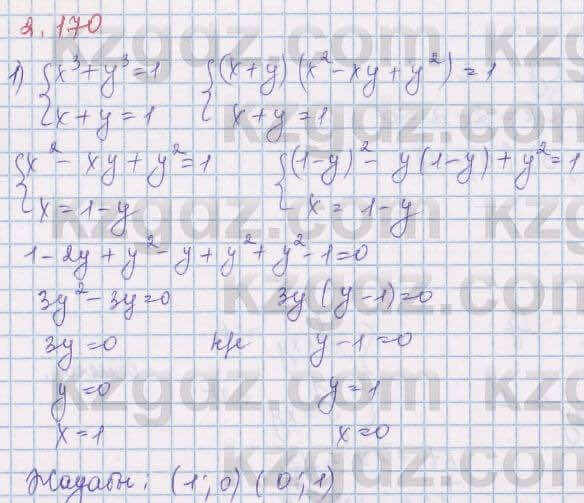 2.170
1) { x³+y³=1 { (x+y)(x²-xy+y²)=1
x+y=1 x+y=1
{ x²-xy+y²=1 { (1-y)²-y(1-y)+y²=1
x=1-y x=1-y
1-2y+y²-y+y²+y²-1=0
3y²-3y=0 3y(y-1)=0
3y=0 y-1=0
y=0 y=1
x=1 x=0
Жауабы: (1;0) (0;1)
kzgdz.com